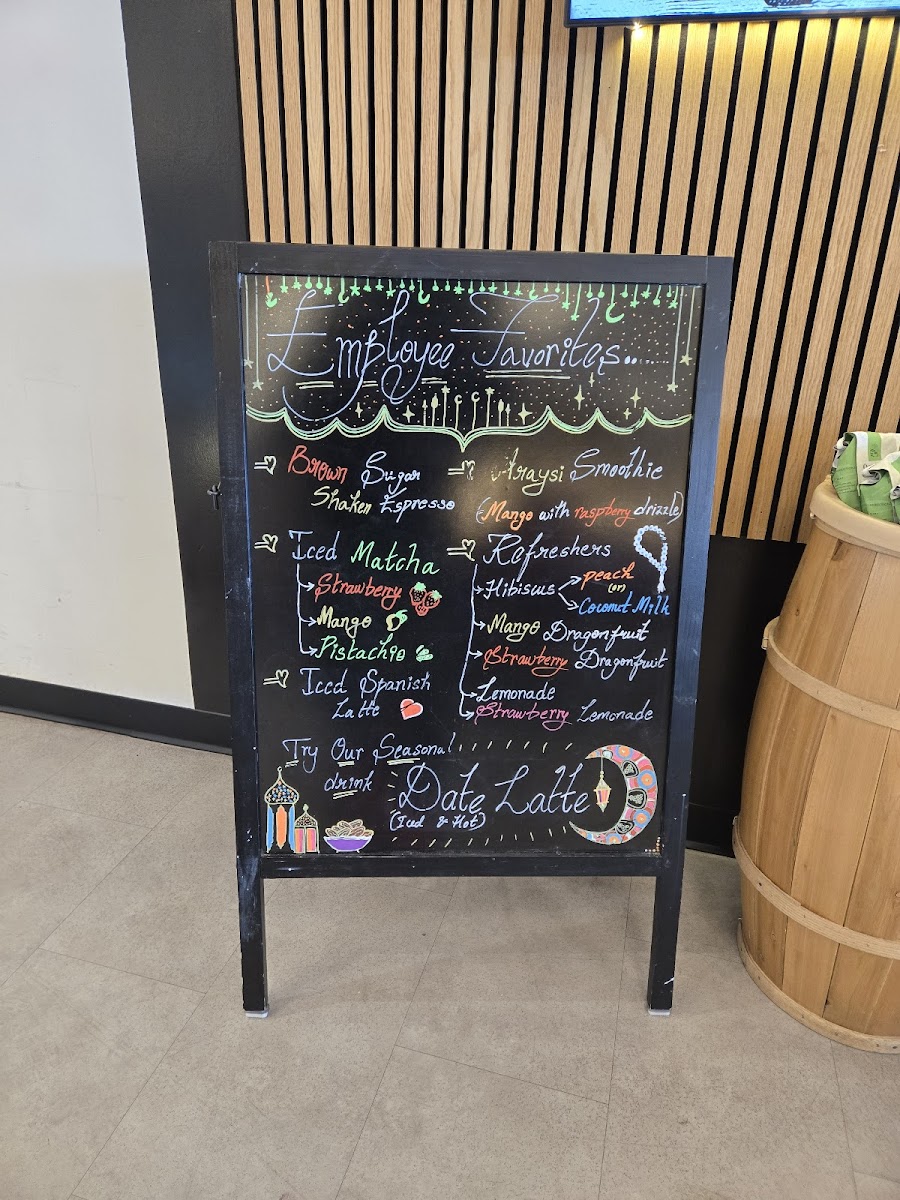 Employee Favorites........
Brown Sugar
Shaken Espresso
Iced Matcha
Strawberry
Mango
Pistachio
Iced Spanish
Latte
Araysi Smoothie
(Mango with raspberry drizzle)
Refreshers
Hibiscus
peach
(or)
Coconut Milk
Mango Dragonfruit
Strawberry Dragonfruit
Lemonade
Strawberry Lemonade
Try Our Seasonal
drink
Date Latte
(Iced & Hot)